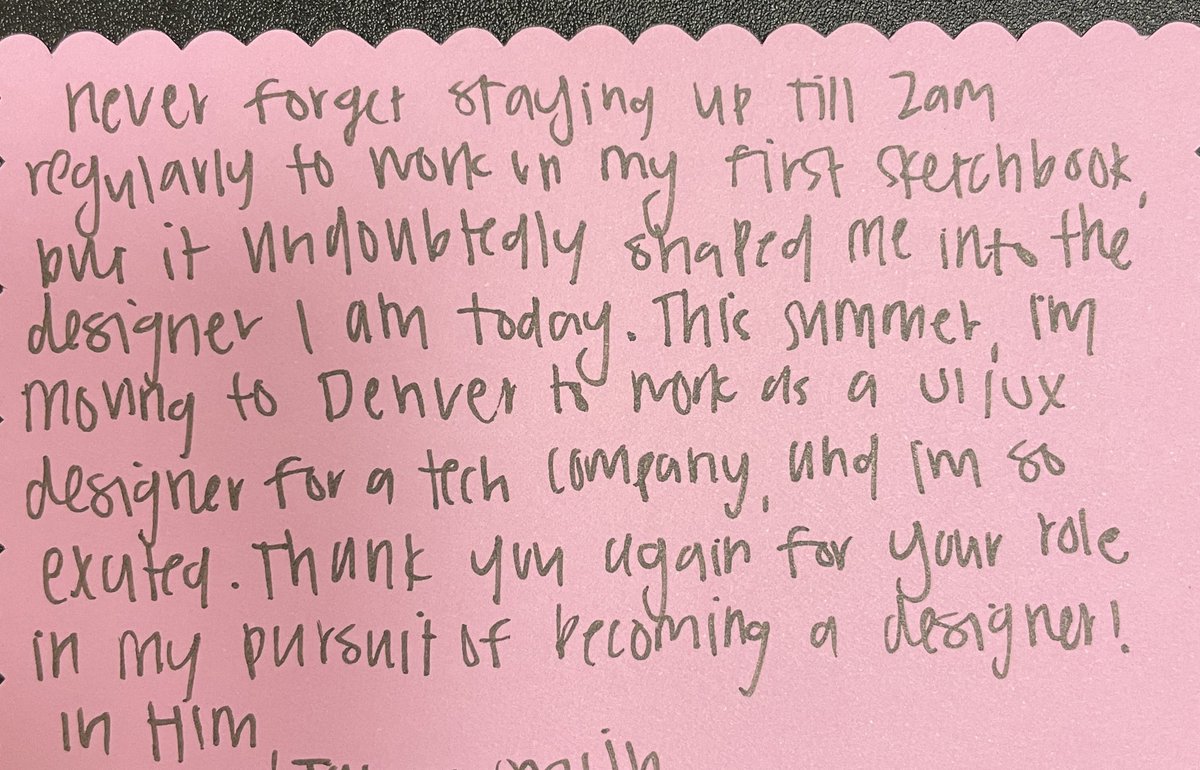 never forget staying up till 2am
regularly to work in my first sketchbook,
but it undoubtedly shaped me into the
designer I am today. This summer, I'm
moving to Denver to work as a UI/UX
designer for a tech company, and I'm so
excited. Thank you again for your role
in my pursuit of becoming a designer!
In Him,